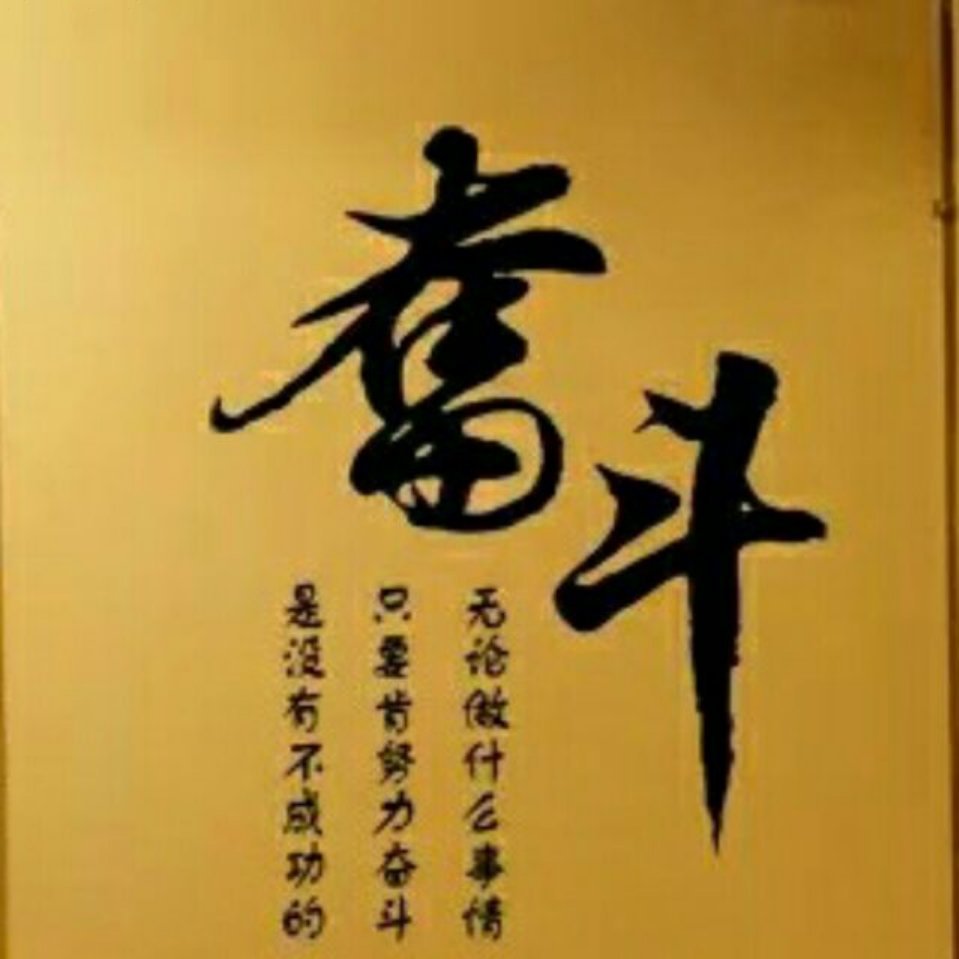 奋斗
无论做什么事情
只要肯努力奋斗
是没有不成功的